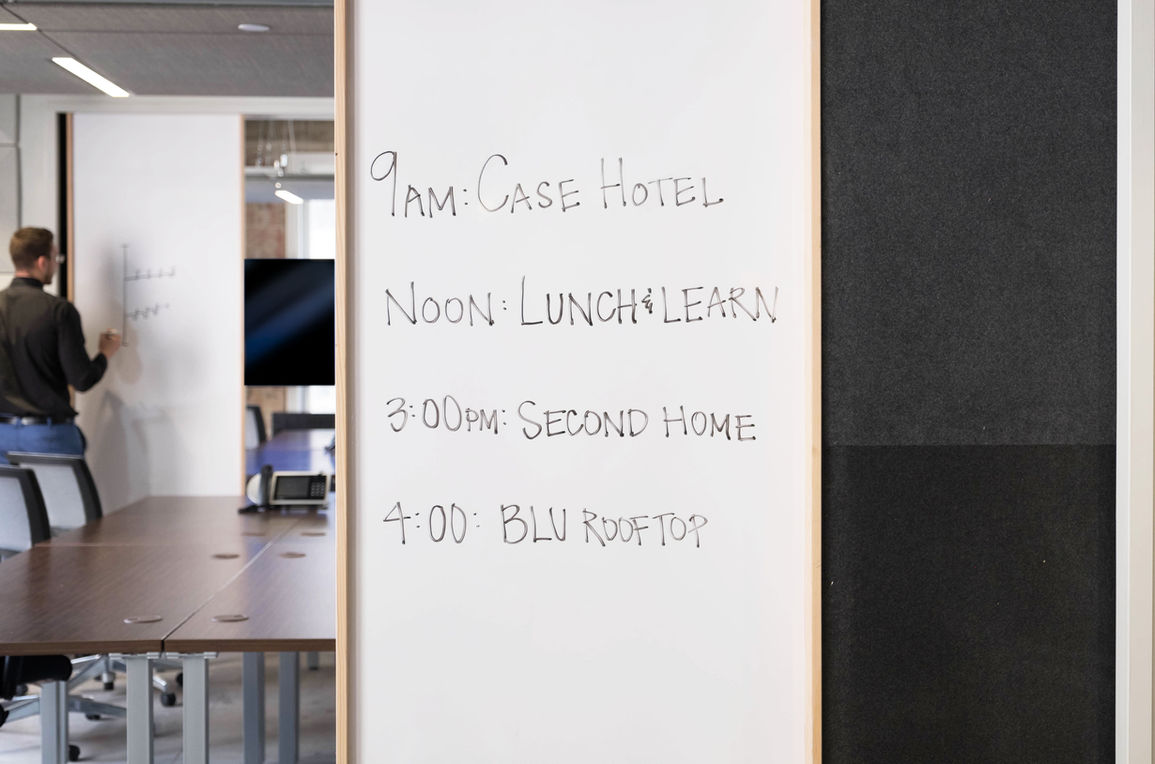 9AM: CASE HOTEL
NOON: LUNCH & LEARN
3:00PM: SECOND HOME
4:00: BLU ROOFTOP